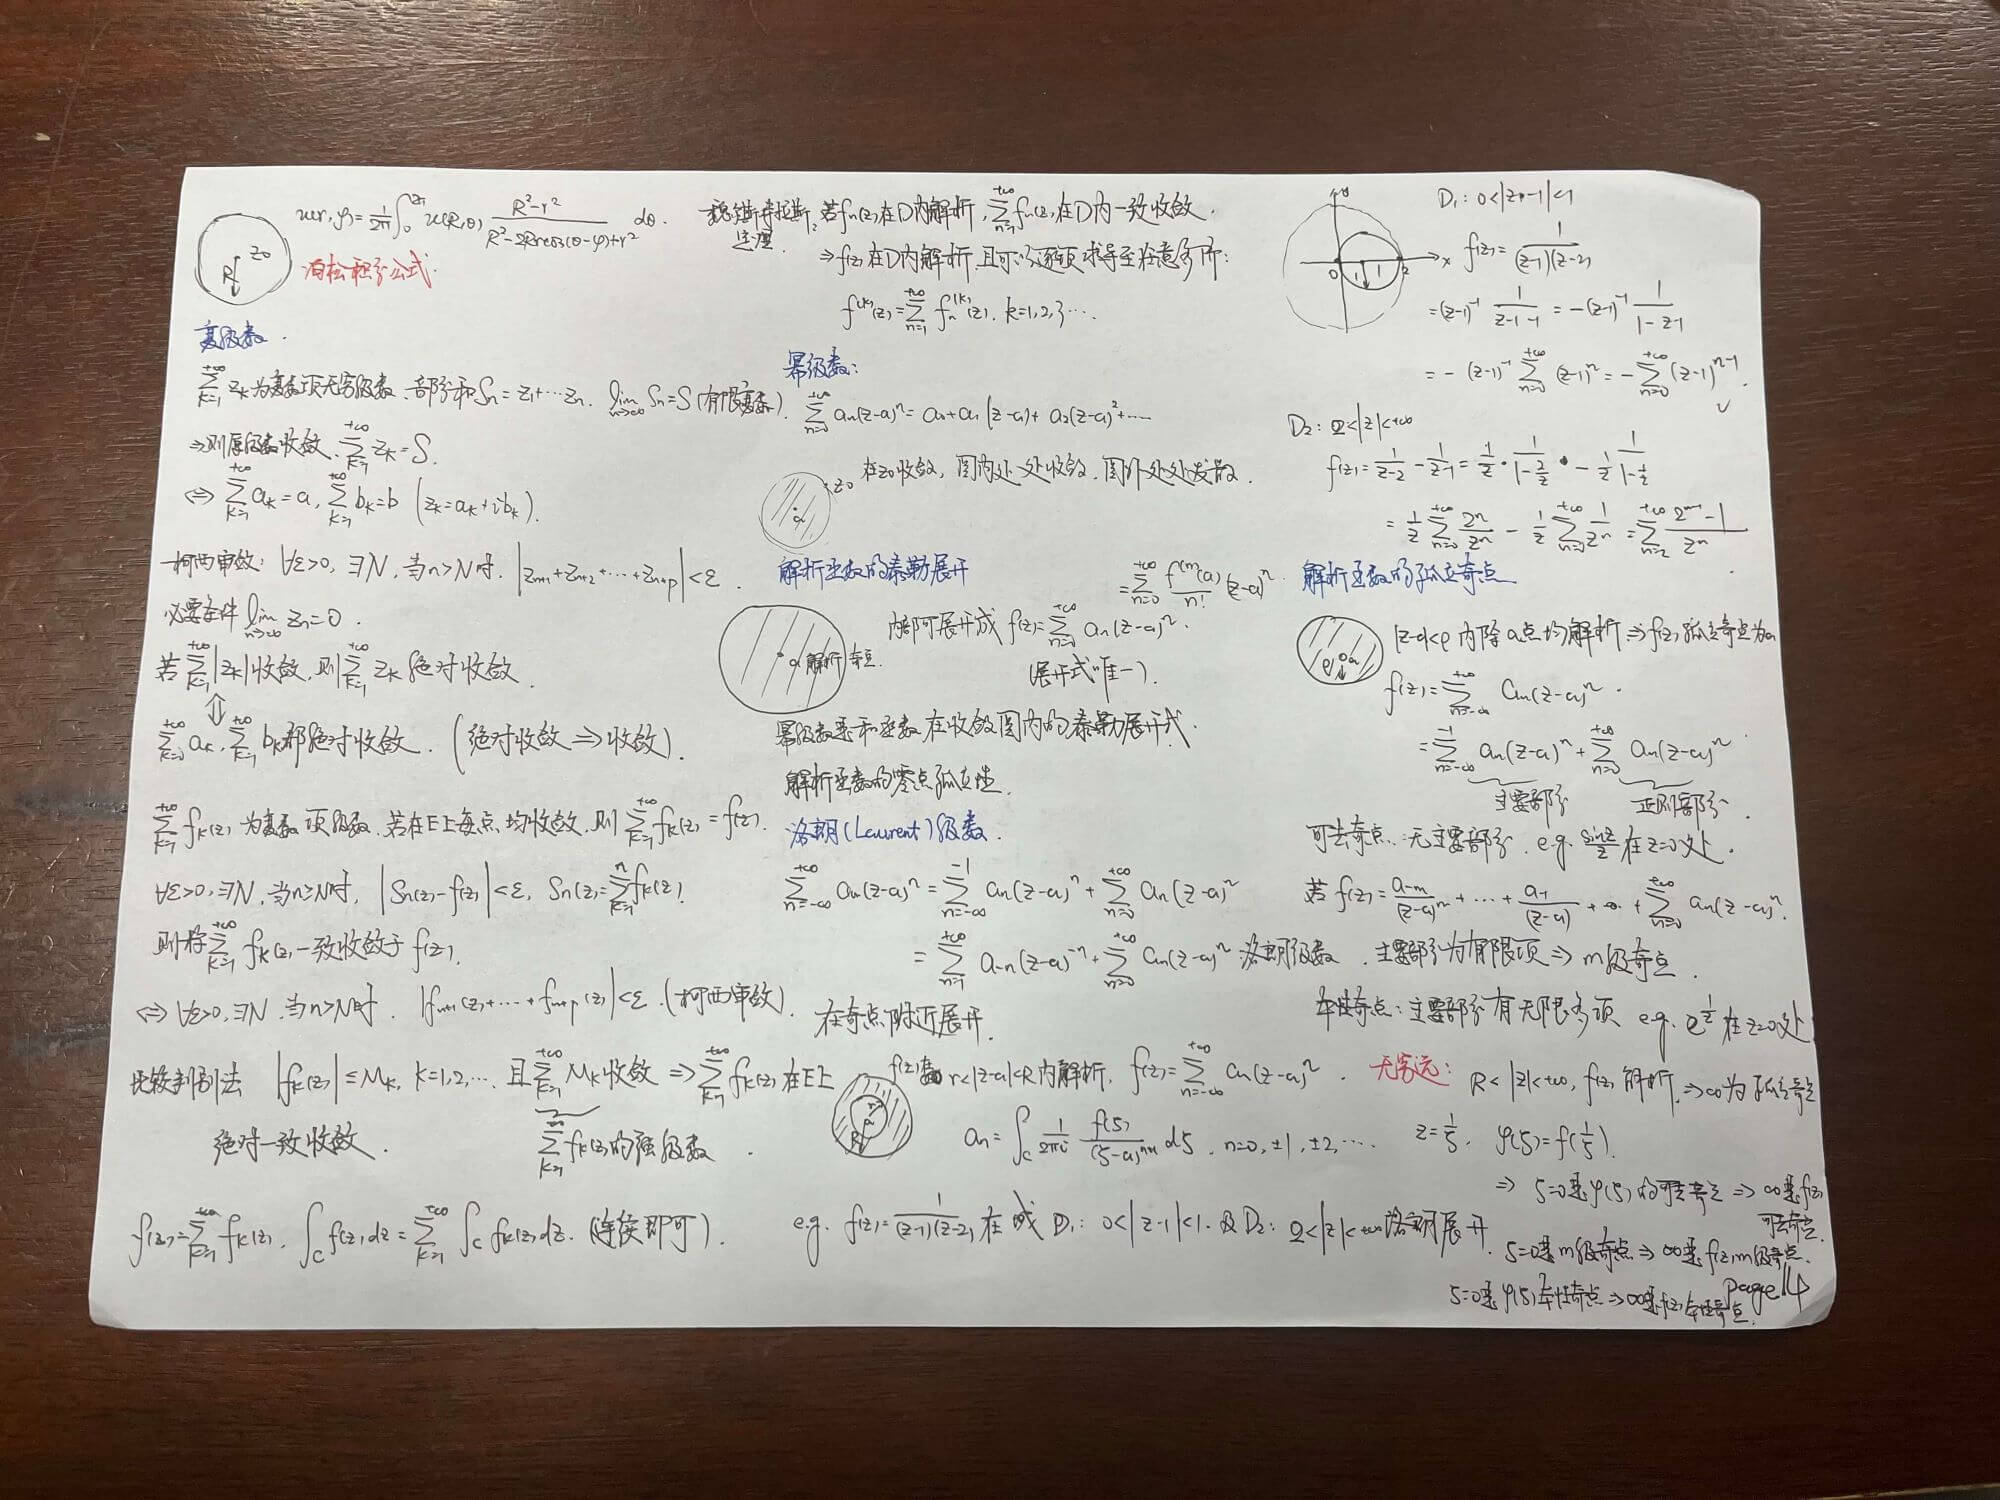 z₀
R
u(r,φ)=1/2π ∫₀^{2π} u(R,θ) (R²-r²)/(R²-2Rrcos(θ-φ)+r²) dθ.
泊松积分公式.
复级数.
∑_{k=1}^{+∞} z_k为复数项无穷级数、部分和Sn=z₁+…zn. lim_{n→∞} Sn=S(有限复数).
⇒则原级数收敛、∑_{k=1}^{+∞} z_k=S.
⇔ ∑_{k=1}^{+∞} a_k=a, ∑_{k=1}^{+∞} b_k=b (z_k=a_k+ib_k).
柯西审敛: ∀ε>0, ∃N, 当n>N时, |z_{n+1}+z_{n+2}+…+z_{n+p}|<ε.
必要条件 lim_{n→∞} zn=0.
若∑_{k=1}^{+∞}|z_k|收敛,则∑_{k=1}^{+∞} z_k 绝对收敛.
⇕
∑_{k=0}^{+∞} a_k, ∑_{k=1}^{+∞} b_k都绝对收敛. (绝对收敛⇒收敛).
∑_{k=1}^{+∞} f_k(z) 为复数项级数、若在E上每点均收敛,则∑_{k=1}^{+∞} f_k(z)=f(z).
∀ε>0,∃N,当n≥N时, |Sn(z)-f(z)|<ε, Sn(z)=∑_{k=1}^{n} f_k(z).
则称∑_{k=1}^{+∞} f_k(z)一致收敛于f(z).
⇔ ∀ε>0,∃N,当n>N时. |f_{n+1}(z)+…+f_{n+p}(z)|<ε.(柯西审敛).
比较判别法 |f_k(z)|≤M_k, k=1,2,…, 且∑_{k=1}^{+∞} M_k收敛⇒∑_{k=1}^{+∞} f_k(z)在E上
绝对一致收敛. ∑_{k=1}^{∞} f_k(z)的强级数.
f(z)=∑_{k=1}^{+∞} f_k(z), ∫_C f(z)dz=∑_{k=1}^{+∞} ∫_C f_k(z)dz.(连续即可).
定理. 若fn(z)在D内解析,∑_{n=1}^{+∞} fn(z)在D内一致收敛.
⇒f(z)在D内解析,且可以逐项求导至任意多阶:
f^{(k)}(z)=∑_{n=1}^{+∞} fn^{(k)}(z). k=1,2,3….
幂级数:
∑_{n=0}^{+∞} an(z-a)ⁿ=a₀+a₁(z-a)+a₂(z-a)²+……
z₀
a
在z₀收敛, 圆内处处收敛,圆外处处发散.
解析函数的泰勒展开
a 解析 奇点
=∑_{n=0}^{+∞} f^{(n)}(a)/n! (z-a)ⁿ.
内部可展开成 f(z)=∑_{n=0}^{+∞} an(z-a)ⁿ.
(展开式唯一).
幂级数是和函数在收敛圆内的泰勒展开式.
解析函数的零点孤立性.
洛朗(Laurent)级数.
∑_{n=-∞}^{+∞} an(z-a)ⁿ=∑_{n=-∞}^{-1} an(z-a)ⁿ+∑_{n=0}^{+∞} an(z-a)ⁿ
=∑_{n=1}^{+∞} a_{-n}(z-a)^{-n}+∑_{n=0}^{+∞} an(z-a)ⁿ 洛朗级数
在奇点附近展开.
r
a
R
f(z)在r<|z-a|<R内解析, f(z)=∑_{n=-∞}^{+∞} an(z-a)ⁿ.
an=∫_C 1/2πi f(ζ)/(ζ-a)^{n+1} dζ, n=0,±1,±2,….
e.g. f(z)=1/(z-1)(z-2) 在域 D₁: 0<|z-1|<1. 及D₂: 2<|z|<+∞洛朗展开.
y
x
0 1 1 2
D₁: 0<|z-1|<1
f(z)=1/(z-1)(z-2)
=(z-1)⁻¹ 1/(z-1-1)=-(z-1)⁻¹ 1/(1-z-1)
=-(z-1)⁻¹ ∑_{n=0}^{+∞}(z-1)ⁿ=-∑_{n=0}^{+∞}(z-1)^{n-1}.
D₂: 2<|z|<+∞
f(z)=1/(z-2)-1/(z-1)=1/z·1/(1-2/z)-1/z 1/(1-1/z)
=1/z ∑_{n=0}^{+∞} 2ⁿ/zⁿ-1/z ∑_{n=0}^{+∞} 1/zⁿ=∑_{n=2}^{+∞} (2^{n-1}-1)/zⁿ.
解析函数的孤立奇点
a
ρ
|z-a|<ρ 内除a点均解析⇒f(z)孤立奇点为a
f(z)=∑_{n=-∞}^{+∞} an(z-a)ⁿ.
=∑_{n=-∞}^{-1} an(z-a)ⁿ+∑_{n=0}^{+∞} an(z-a)ⁿ
主要部分 正则部分.
可去奇点: 无主要部分. e.g. sinz/z 在z=0处.
若 f(z)=a_{-m}/(z-a)ᵐ+…+a_{-1}/(z-a)+∑_{n=0}^{+∞} an(z-a)ⁿ.
主要部分为有限项⇒m级奇点.
本性奇点: 主要部分有无限多项 e.g. e^{1/z} 在z=0处
无穷远: R<|z|<+∞, f(z)解析.⇒∞为孤立奇点
z=1/ζ. φ(ζ)=f(1/ζ).
⇒ ζ=0是φ(ζ)的可去奇点⇒∞是f(z)
可去奇点.
ζ=0是m级奇点⇒∞是f(z)m级奇点.
ζ=0是φ(ζ)本性奇点⇒∞是f(z)本性奇点.
page 14